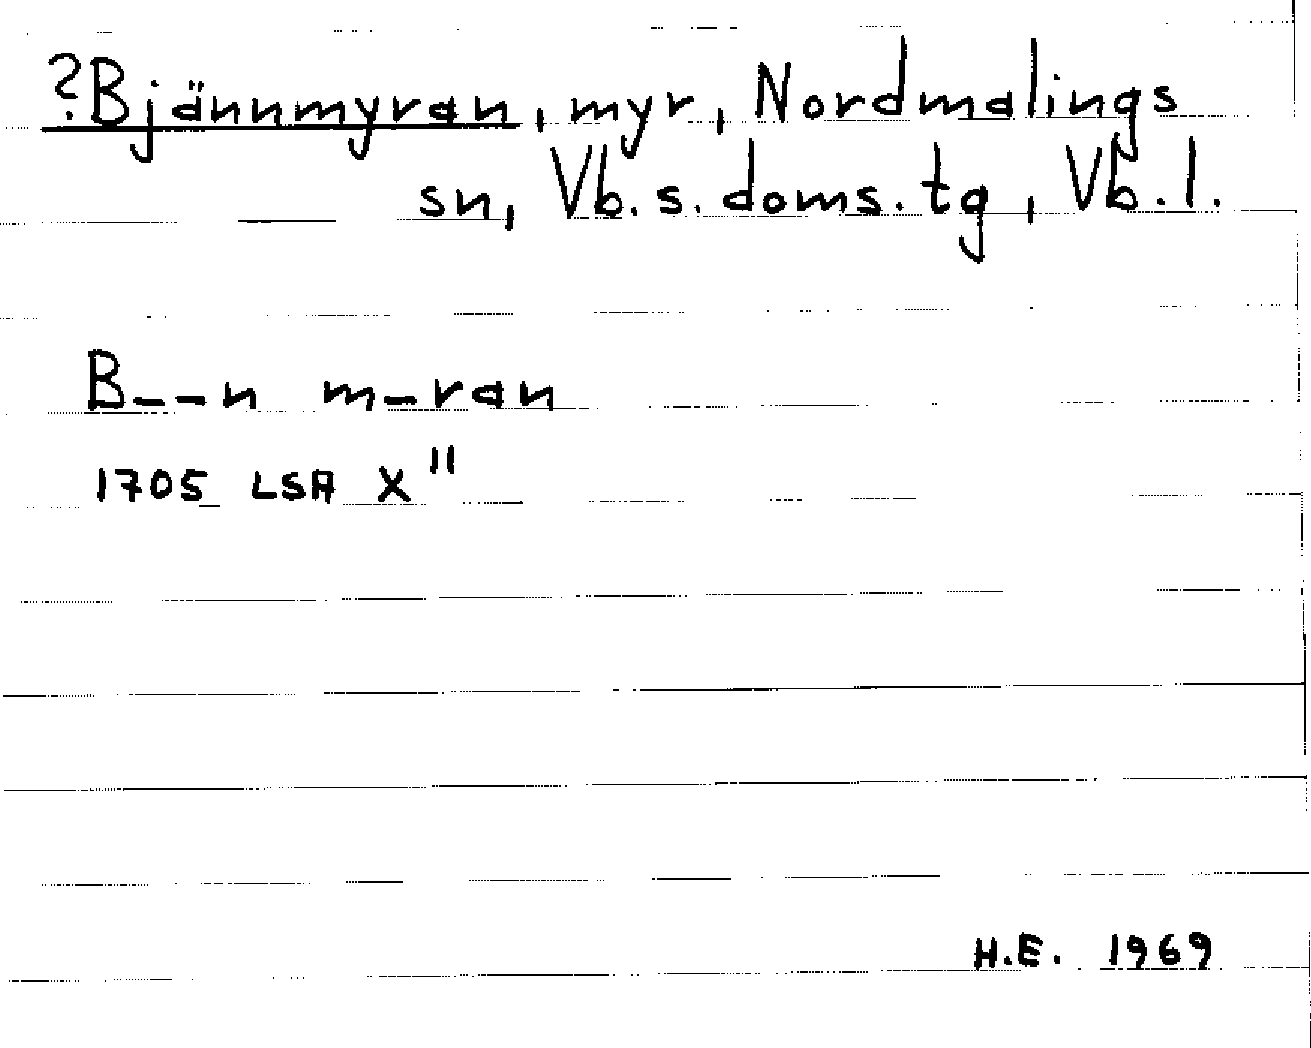 ?Bjännmyran, myr, Nordmalings
sn, Vb.s.doms.tg, Vb.l.
B--n m-ran
1705 LSA X"
H.E. 1969